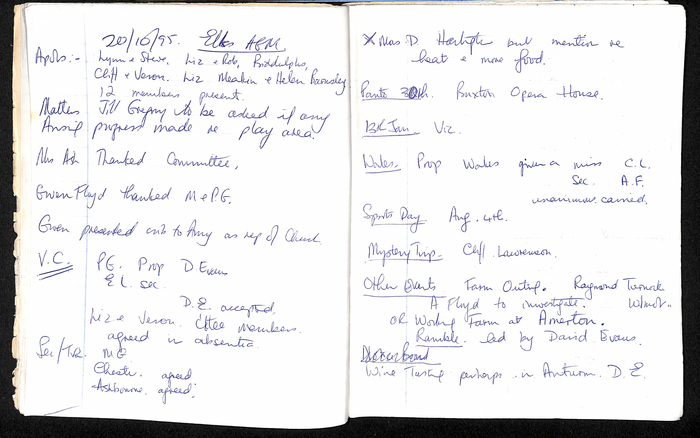 20/10/95. Elkes AGM
Apols:- Lynn & Steve, Liz & Rob, Biddulphs,
Cliff & Veron. Liz Meakin & Helen Barnsley
12 members present.
Matters Jill Gregory to be asked if any
Arising progress made re play area.
Mrs Ash Thanked Committee.
Gwen Floyd thanked M & P.G.
Gwen presented to Amy as rep of Church
V.C. P.G. Prop D Evans
E L. sec.
D.E. accepted.
Liz & Veron. Cttee Members.
agreed in absentia
Sec/Tr. M E
Cheadle. agreed
Ashbourne. agreed.
X Mas D. but mention re
heat & more food.
Panto 30th. Buxton Opera House.
13th Jan. Viz.
Wales. Prop Wales given a miss C.L.
Sec. A.F.
unanimous. carried.
Sports Day Aug. 4th.
Mystery Trip. Cliff. Lawrenson.
Other Events Farm Outing. Raymond
A Floyd to investigate.
OR Working Farm at Amerton.
Ramble. led by David Evans.
Wine Tasting perhaps in Autumn. D.E.